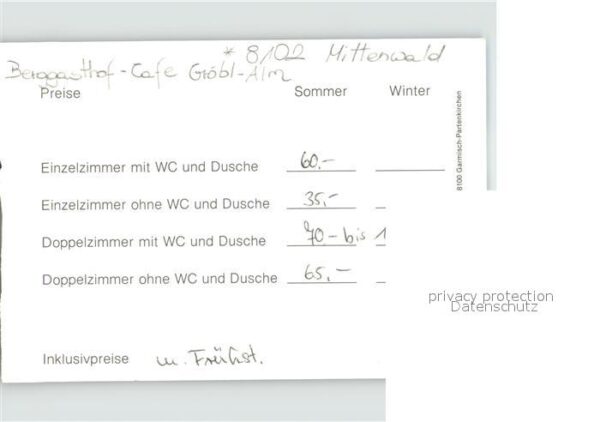 * 8102 Mittenwald
Berggasthof - Cafe Gröbl-Alm
Preise Sommer Winter
Einzelzimmer mit WC und Dusche 60.-
Einzelzimmer ohne WC und Dusche 35,-
Doppelzimmer mit WC und Dusche 70.- bis 1
Doppelzimmer ohne WC und Dusche 65,-
Inklusivpreise m. Frühst.
8100 Garmisch-Partenkirchen
privacy protection
Datenschutz